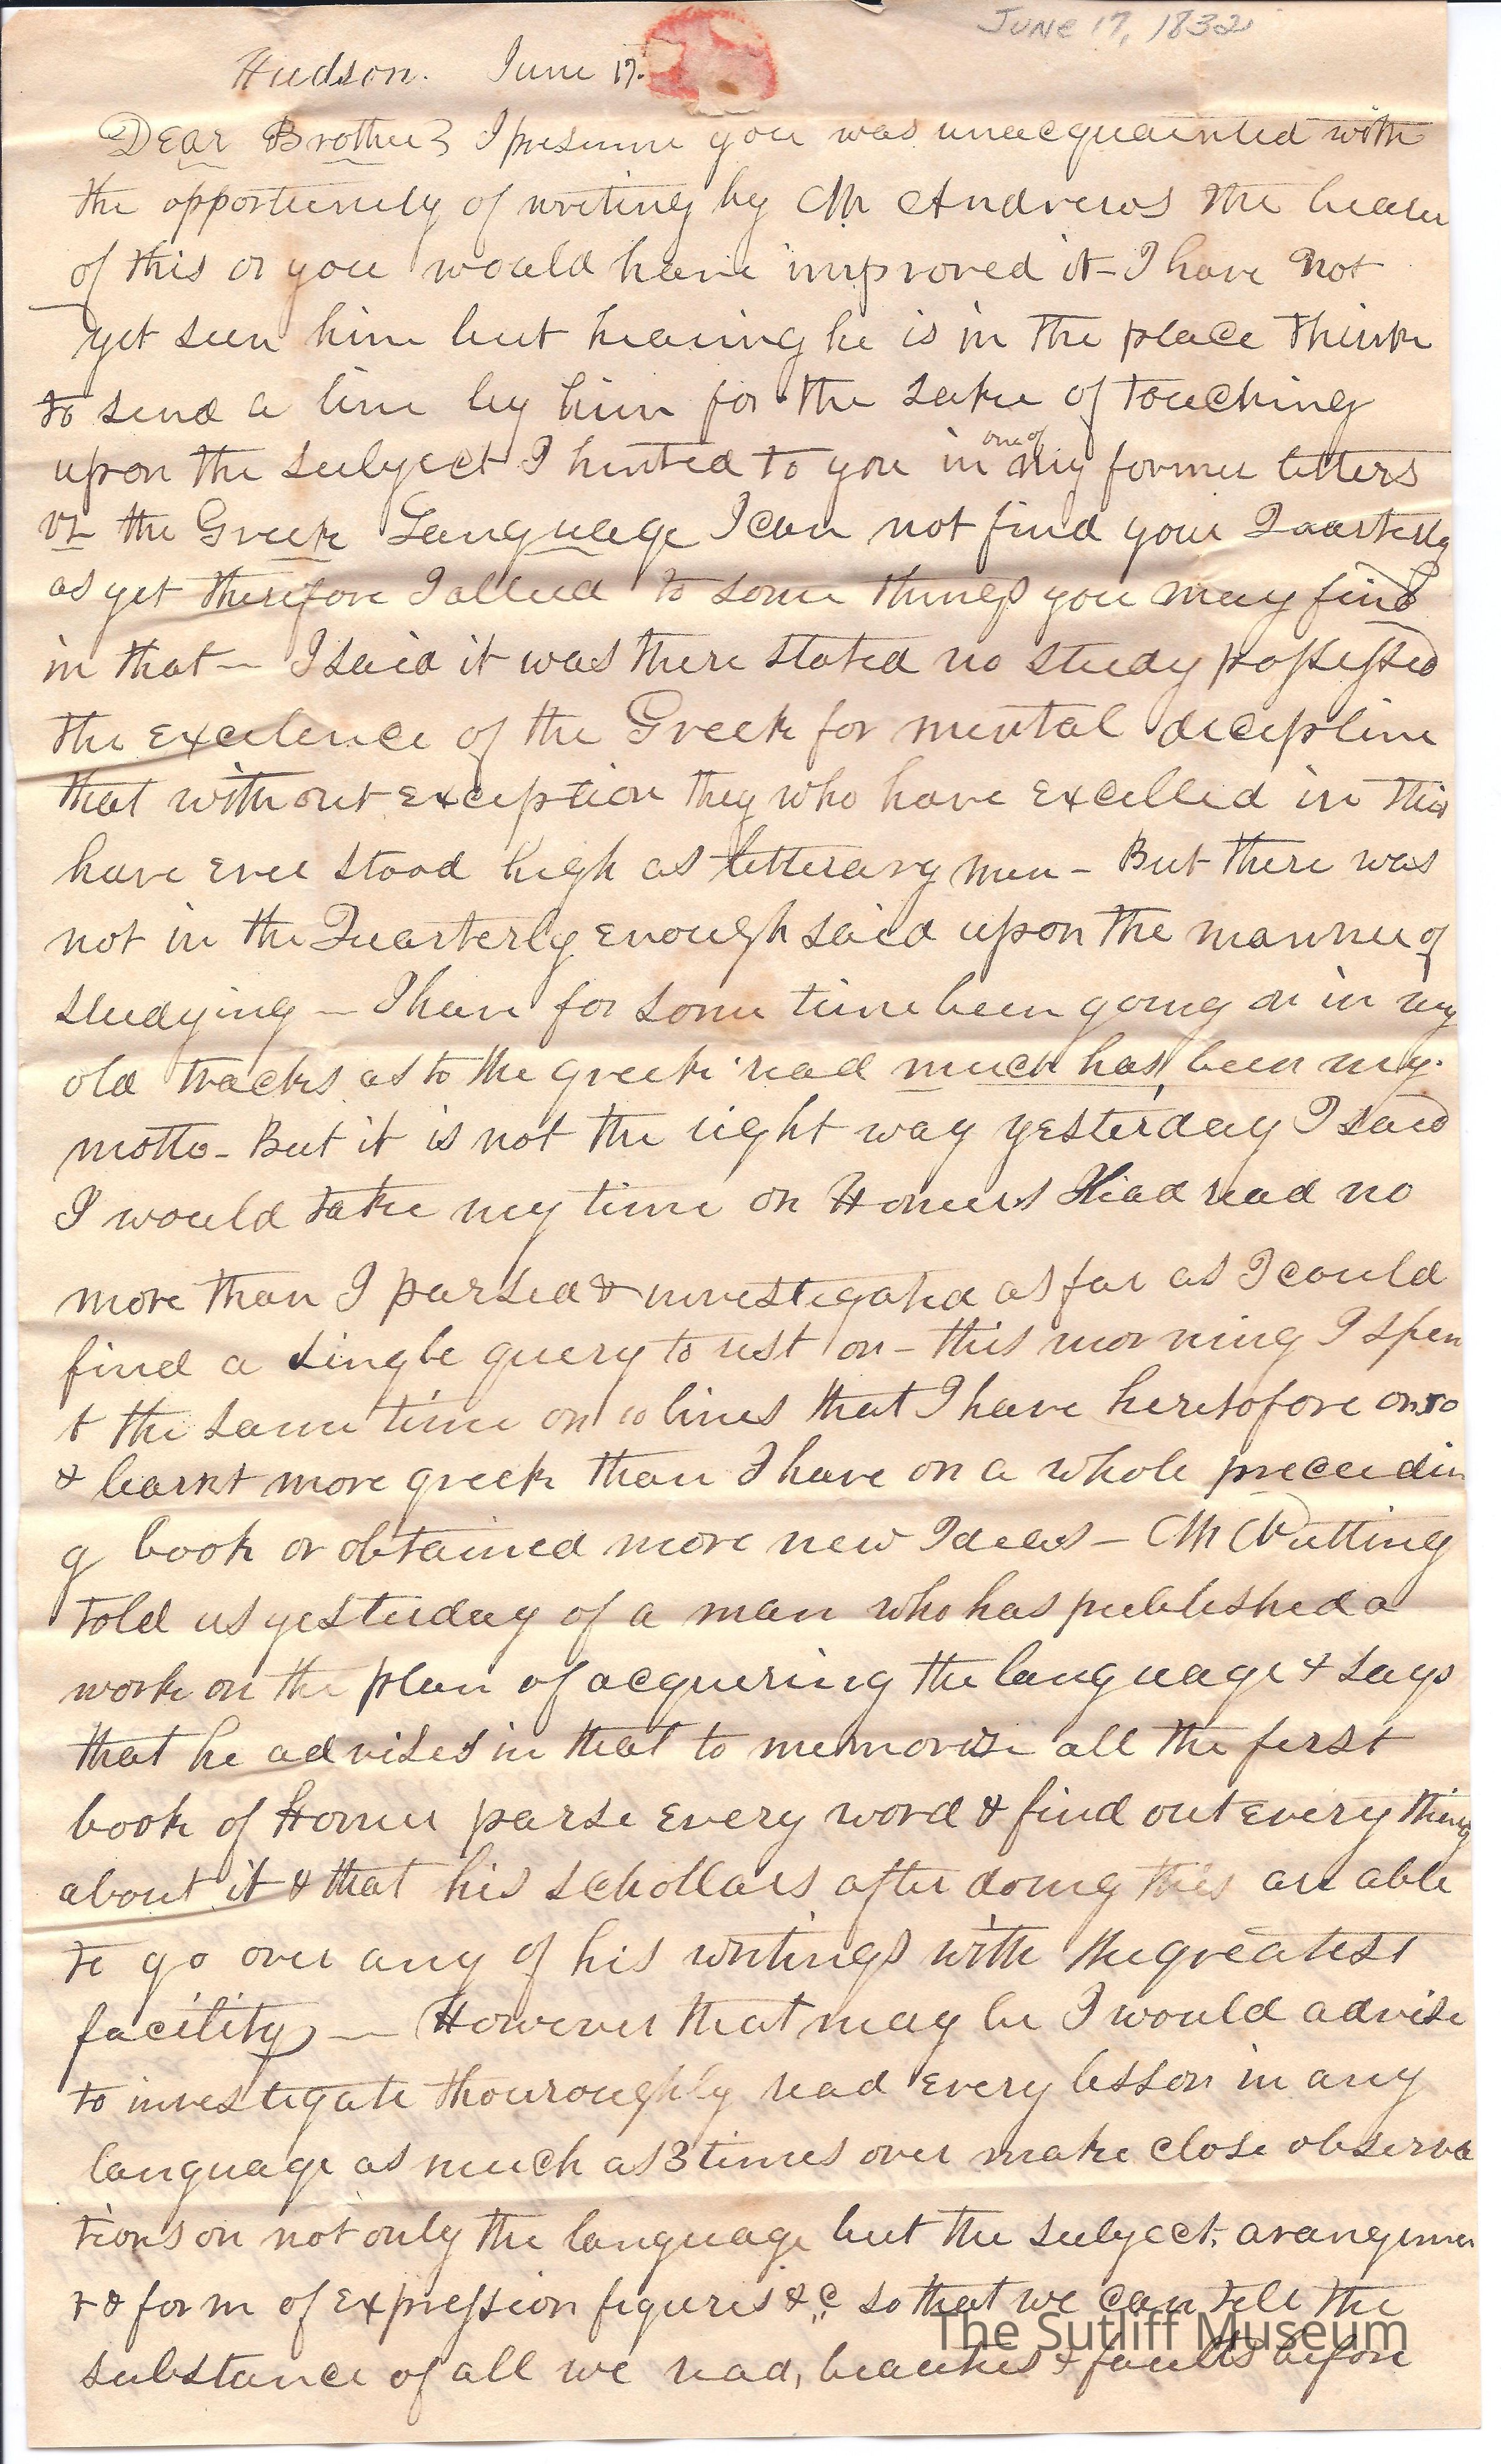 JUNE 17, 1832
Hudson. June 17.
Dear Brother I presume you was unacquainted with
the opportunity of writing by Mr Andrews the bearer
of this or you would have improved it - I have not
yet seen him but hearing he is in the place think
to send a line by him for the sake of touching
upon the subject I hinted to you in one of my former letters
viz the Greek Language I can not find your Quarterly
as yet therefore I allud to some things you may find
in that - I said it was there stated no study possessed
the excelence of the Greek for mental decipline
that without exception they who have excelled in this
have ever stood high as litterary men - But there was
not in the Quarterly enough said upon the manner of
studying - I have for some time been going on in my
old tracks as to the greek read much has been my
motto - But it is not the right way yesterday I said
I would take my time on Homers Iliad read no
more than I parsed & investigated as far as I could
find a single query to rest on - this morning I spen
t the same time on 10 lines that I have heretofore on 50
& learnt more greek than I have on a whole preceedin
g book or obtained more new Ideas - Mr Nutting
told us yesterday of a man who has published a
work on the plan of acquering the language & says
that he advises in that to memorize all the first
book of Homer parse every word & find out every thing
about it & that his schollars after doing this are able
to go over any of his writings with the greatest
facility - However that may be I would advise
to investigate thouroughly read every lesson in any
language as much as 3 times over make close observa
tions on not only the language but the subject, arangemen
t & form of expression figures &c so that we can tell the
substance of all we read, beauties & faults before
The Sutliff Museum